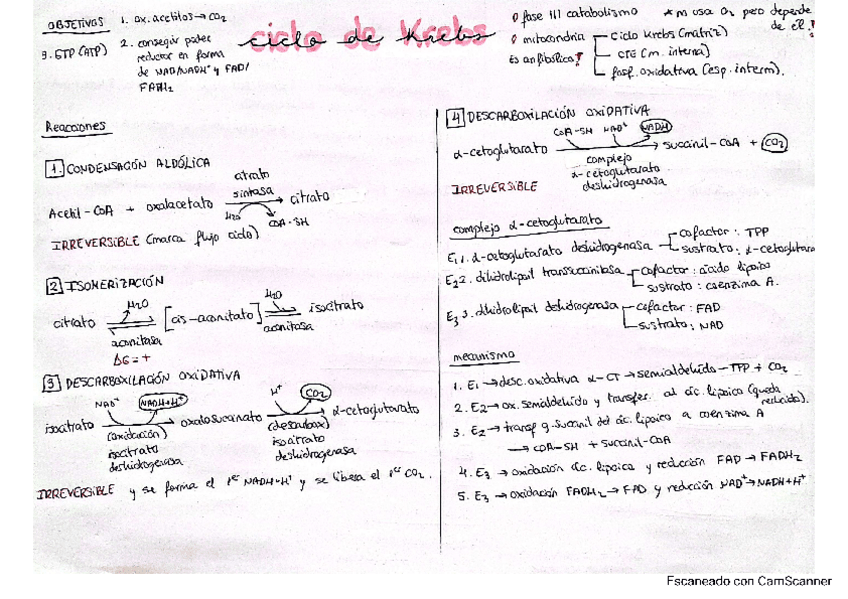 OBJETIVOS
1. ox. acetilos → CO2
2. conseguir poder
reductor en forma
de NAD/NADH+ y FAD/
FADH2
3. GTP (ATP)
ciclo de Krebs
fase III catabolismo
mitocondria
Ciclo Krebs (matriz)
CTE (m. interna)
fosf. oxidativa (esp. interm).
Es anfibólica!
* no usa O2 pero depende
de él!
Reacciones
1. CONDENSACIÓN ALDÓLICA
Acetil-CoA + oxalacetato → citrato
citrato
sintasa
H2O
CoA-SH
IRREVERSIBLE (marca flujo ciclo)
2 ISOMERIZACIÓN
citrato ⇌ [cis-aconitato] ⇌ isocitrato
H2O H2O
aconitasa aconitasa
ΔG = +
3 DESCARBOXILACIÓN OXIDATIVA
NAD+ NADH+H+ H+ CO2
isocitrato → oxalosuccinato → α-cetoglutarato
(oxidación) (descarbox)
isocitrato isocitrato
deshidrogenasa deshidrogenasa
IRREVERSIBLE y se forma el 1er NADH+H+ y se libera el 1er CO2.
4 DESCARBOXILACIÓN OXIDATIVA
CoA-SH NAD+ NADH
α-cetoglutarato → succinil-CoA + CO2
complejo
α-cetoglutarato
deshidrogenasa
IRREVERSIBLE
complejo α-cetoglutarato
E1 1. α-cetoglutarato deshidrogenasa
cofactor: TPP
sustrato: α-cetoglutara
E2 2. dihidrolipoil transuccinilasa
cofactor: ácido lipoico
sustrato: coenzima A.
E3 3. dihidrolipoil deshidrogenasa
cofactor: FAD
sustrato: NAD
mecanismo
1. E1 → desc. oxidativa α-CT → semialdehído-TPP + CO2
2. E2 → ox. semialdehído y transfer. al ác. lipoico (queda
reducido).
3. E2 → transf g. succinil del ác. lipoico a coenzima A
→ CoA-SH + succinil-CoA
4. E3 → oxidación ác. lipoico y reducción FAD → FADH2
5. E3 → oxidación FADH2 → FAD y reducción NAD+ → NADH+H+
Escaneado con CamScanner